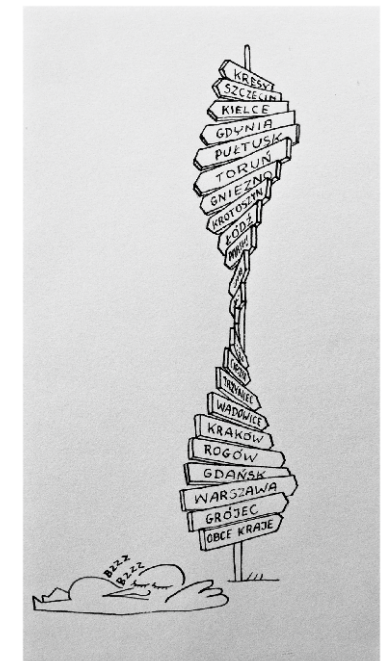 KRESY
SZCZECIN
KIELCE
GDYNIA
PUŁTUSK
TORUŃ
GNIEZNO
KROTOSZYN
ŁÓDŹ
WADOWICE
KRAKÓW
ROGÓW
GDAŃSK
WARSZAWA
GRÓJEC
OBCE KRAJE
BZZZ
BZZZ